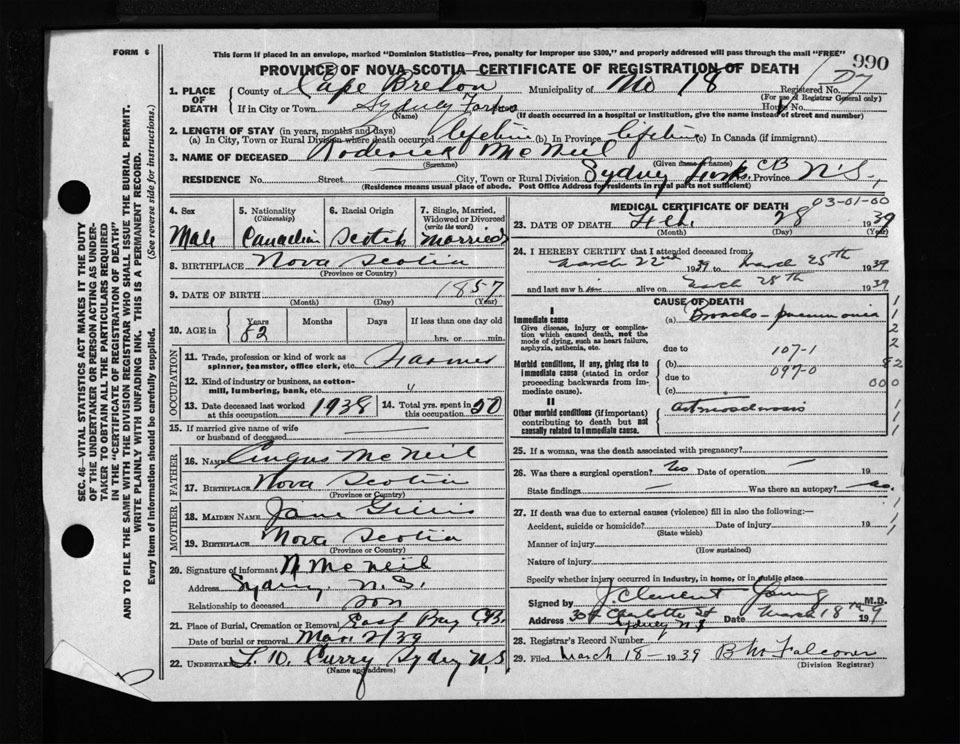 FORM 6
This form if placed in an envelope, marked "Dominion Statistics—Free, penalty for improper use $300," and properly addressed will pass through the mail "FREE"
990
PROVINCE OF NOVA SCOTIA—CERTIFICATE OF REGISTRATION OF DEATH
1. PLACE OF DEATH
County of Cape Breton Municipality of No 18 Registered No.
(For use of Registrar General only)
If in City or Town Sydney Forks House No.
(Name)
(If death occurred in a hospital or Institution, give the name instead of street and number)
2. LENGTH OF STAY (in years, months and days)
(a) In City, Town or Rural Division where death occurred lifetime (b) In Province lifetime (c) In Canada (if immigrant)
3. NAME OF DECEASED Roderick McNeil
(Surname) (Given name or names)
RESIDENCE No. Street City, Town or Rural Division Sydney Forks CB Province N.S.,
(Residence means usual place of abode. Post Office Address for residents in rural parts not sufficient)
4. Sex
Male
5. Nationality
(Citizenship)
Canadian
6. Racial Origin
Scotch
7. Single, Married, Widowed or Divorced
(write the word)
Married
8. BIRTHPLACE Nova Scotia
(Province or Country)
9. DATE OF BIRTH 1857
(Month) (Day) (Year)
10. AGE in Years Months Days If less than one day
82 hrs. or min.
OCCUPATION
11. Trade, profession or kind of work as spinner, teamster, office clerk, etc. Farmer
12. Kind of industry or business, as cotton-mill, lumbering, bank, etc. "
13. Date deceased last worked at this occupation 1938
14. Total yrs. spent in this occupation 50
15. If married give name of wife or husband of deceased
FATHER
16. NAME Angus McNeil
17. BIRTHPLACE Nova Scotia
(Province or Country)
MOTHER
18. MAIDEN NAME Jane Gillis
19. BIRTHPLACE Nova Scotia
(Province or Country)
20. Signature of informant N McNeil
Address Sydney N.S.
Relationship to deceased son
21. Place of Burial, Cremation or Removal East Bay CB.
Date of burial or removal Mar. 2/39
22. UNDERTAKER Curry Sydney N,S
(Name and address)
MEDICAL CERTIFICATE OF DEATH
03-01-00
23. DATE OF DEATH Feb. 28 1939
(Month) (Day) (Year)
24. I HEREBY CERTIFY that I attended deceased from:
March 22nd 1939 to March 25th 1939
and last saw him alive on March 25th 1939
CAUSE OF DEATH
I
Immediate cause
Give disease, injury or complication which caused death, not the mode of dying, such as heart failure, asphyxia, asthenia, etc.
(a) Broncho-pneumonia
due to 107-1
Morbid conditions, if any, giving rise to immediate cause (stated in order proceeding backwards from immediate cause).
(b)
due to 097-0
(c)
II
Other morbid conditions (if important) contributing to death but not causally related to immediate cause.
Arteriosclerosis
25. If a woman, was the death associated with pregnancy?
26. Was there a surgical operation? No Date of operation — 19
State findings — Was there an autopsy? no.
27. If death was due to external causes (violence) fill in also the following:—
Accident, suicide or homicide? Date of injury 19
(State which)
Manner of injury
(How sustained)
Nature of injury
Specify whether injury occurred in industry, in home, or in public place
Signed by J Clement Young M.D.
Address Charlotte St Sydney N.S Date March 18th 1939
28. Registrar's Record Number
29. Filed March 18- 1939 Falconer
(Division Registrar)
SEC. 46—VITAL STATISTICS ACT MAKES IT THE DUTY
OF THE UNDERTAKER OR PERSON ACTING AS UNDER-
TAKER TO OBTAIN ALL THE PARTICULARS REQUIRED
IN THE "CERTIFICATE OF REGISTRATION OF DEATH"
AND TO FILE THE SAME WITH THE DIVISION REGISTRAR WHO SHALL ISSUE THE BURIAL PERMIT.
WRITE PLAINLY WITH UNFADING INK. THIS IS A PERMANENT RECORD.
Every item of Information should be carefully supplied. (See reverse side for instructions.)